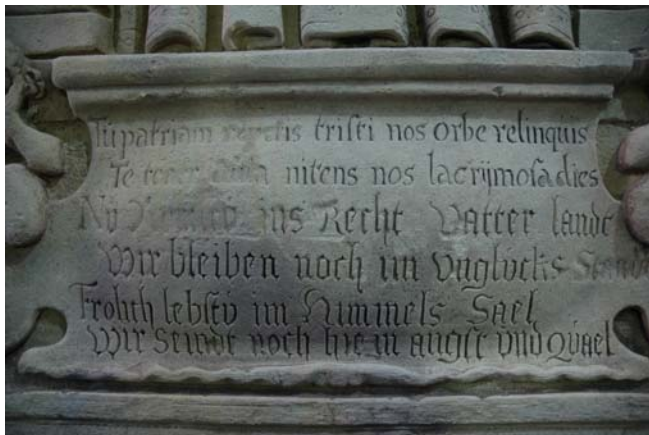 Tu patriam repetis tristi nos orbe relinquis
Te tenet nitens nos lacrijmosa dies
Nv ins Recht Vatter landt
Wir bleiben noch im Vnglvcks Standt
Frolich lebstv im Himmels Sael
Wir Seindt noch hie in angst vnd Qvael